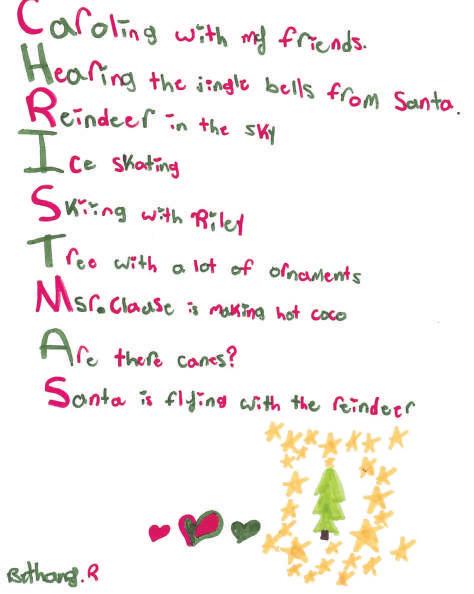 Caroling with my friends.
Hearing the jingle bells from Santa.
Reindeer in the sky
Ice skating
Skiing with Riley
Tree with a lot of ornaments
Msr.Clause is making hot coco
Are there canes?
Santa is flying with the reindeer
Bethany.R